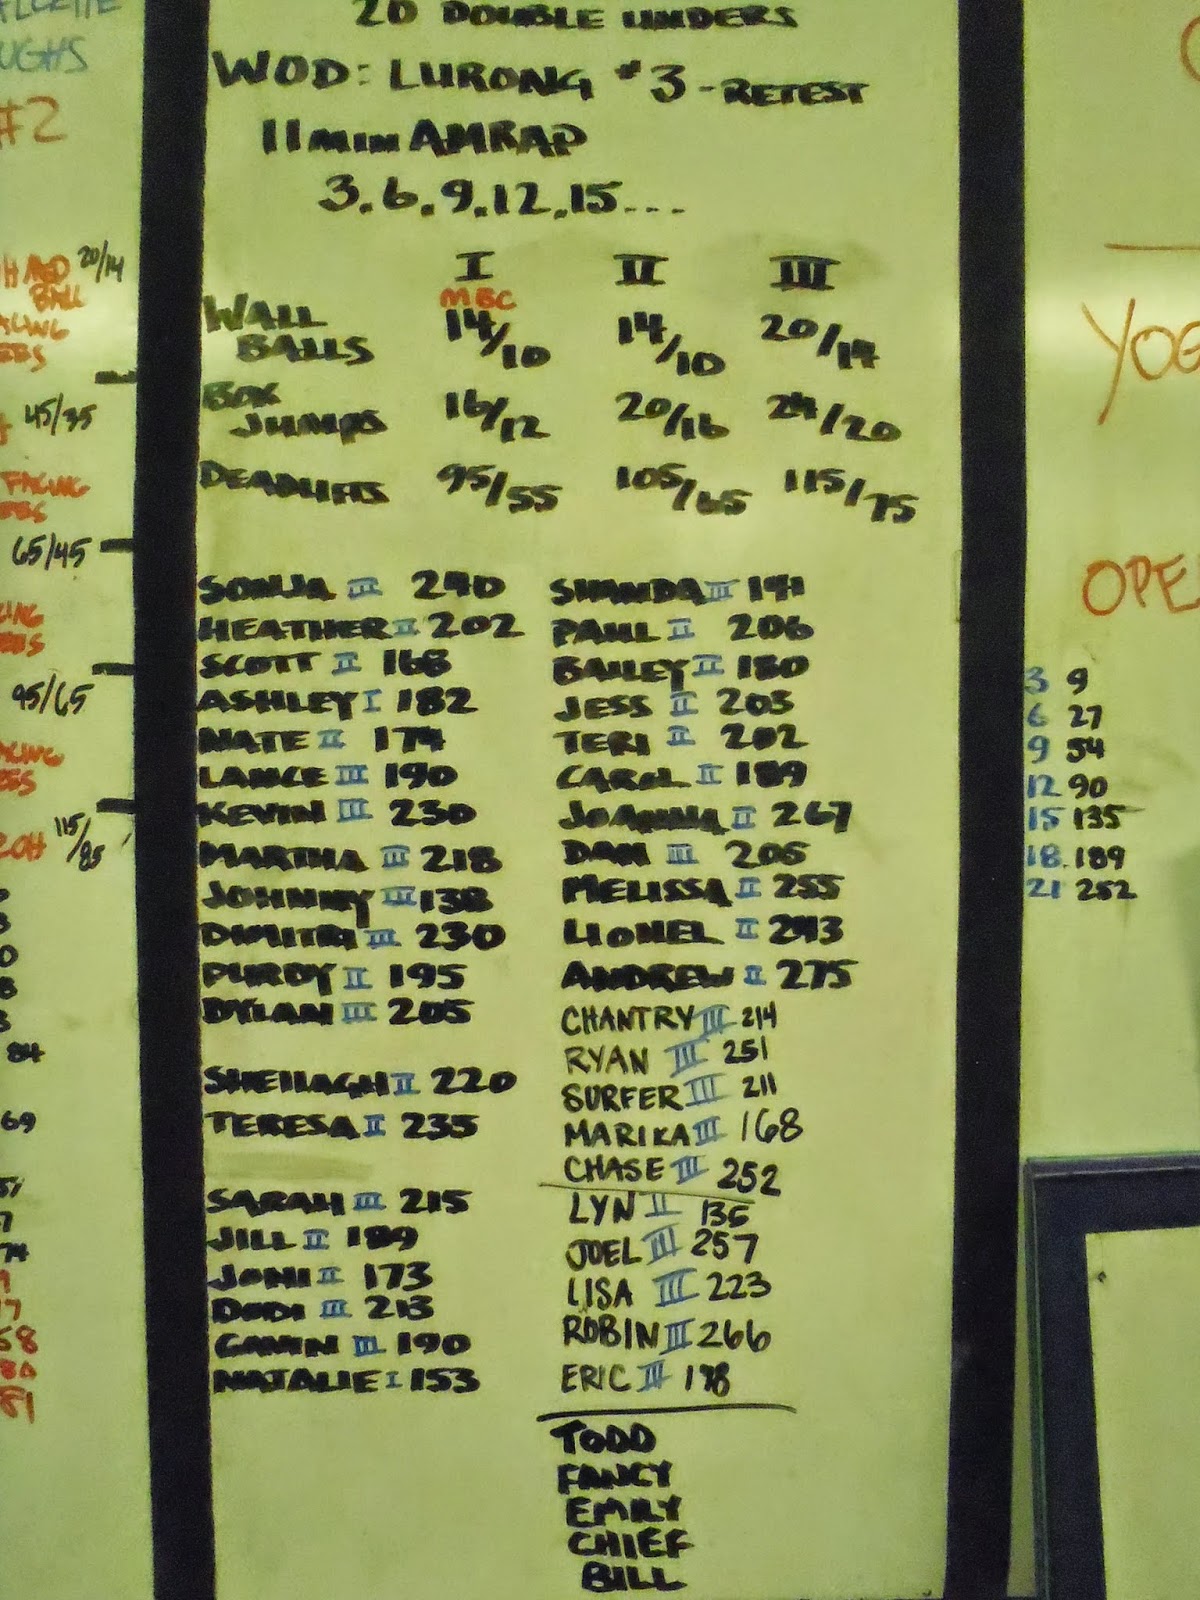 20 DOUBLE UNDERS
WOD: LURONG #3 - RETEST
11 MIN AMRAP
3.6.9.12.15...
I II III
MBC
WALL BALLS 14/10 14/10 20/14
BOX JUMPS 16/12 20/16 24/20
DEADLIFTS 95/55 105/65 115/75
SONJA III 240
HEATHER II 202
SCOTT II 168
ASHLEY I 182
NATE II 174
LANCE III 190
KEVIN III 230
MARTHA III 218
JOHNNY III 138
DIMITRI III 230
PURDY II 195
DYLAN III 205
SHEILAGH II 220
TERESA II 235
SARAH III 215
JILL II 189
JONI II 173
DODI III 213
GAVIN III 190
NATALIE I 153
SHANDA III 141
PAUL II 206
BAILEY II 180
JESS II 203
TERI II 202
CAROL II 189
JOANNA II 267
DAN III 205
MELISSA II 255
LIONEL II 243
ANDREW II 275
CHANTRY III 214
RYAN III 251
SURFER III 211
MARIKA III 168
CHASE III 252
LYN II 135
JOEL III 257
LISA III 223
ROBIN III 266
ERIC III 198
TODD
FANCY
EMILY
CHIEF
BILL
UGHS
#2
20/14
BALL
45/35
FACING
65/45
95/65
115/85
84
69
YOG
OPE
3 9
6 27
9 54
12 90
15 135
18. 189
21 252